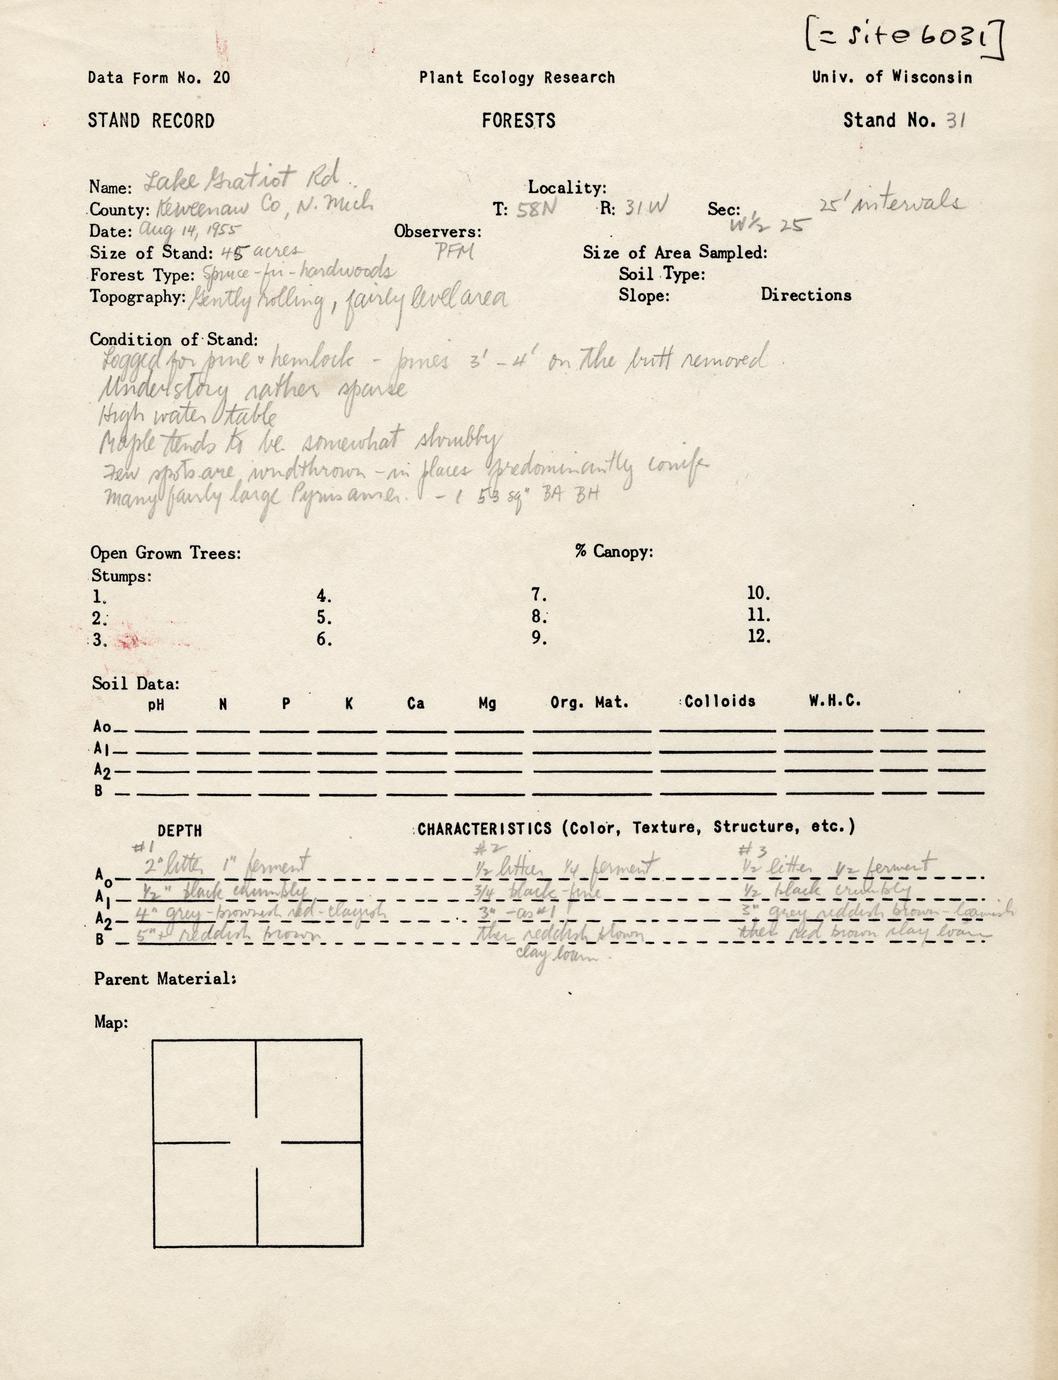 [= Site 6031]
Data Form No. 20 Plant Ecology Research Univ. of Wisconsin
STAND RECORD FORESTS Stand No. 31
Name: Lake Gratiot Rd. Locality:
County: Keweenaw Co, N. Mich T: 58N R: 31W Sec: W½ 25 25' intervals
Date: Aug 14, 1955 Observers: PFM
Size of Stand: 45 acres Size of Area Sampled:
Forest Type: Spruce-fir-hardwoods Soil Type:
Topography: Gently rolling, fairly level area Slope: Directions
Condition of Stand:
Logged for pine & hemlock - pines 3' - 4' on the butt removed
Understory rather sparse
High water table
Maple tends to be somewhat shrubby
Few spots are windthrown - in places predominantly conifer
Many fairly large Pyrus amer. - 1 53 sq" BA BH
Open Grown Trees: % Canopy:
Stumps:
1. 4. 7. 10.
2. 5. 8. 11.
3. 6. 9. 12.
Soil Data:
pH N P K Ca Mg Org. Mat. Colloids W.H.C.
Ao
A1
A2
B
DEPTH CHARACTERISTICS (Color, Texture, Structure, etc.)
#1 #2 #3
Ao 2" litter 1" ferment ½ litter ¼ ferment ½ litter ½ ferment
A1 ½" black crumbly 3/4 black-fine ½ black crumbly
A2 4" grey-brownish red-clayish 3" - as #1 3" grey reddish brown-loamish
B 5"+ reddish brown then reddish brown then red brown clay loam
clay loam
Parent Material:
Map: